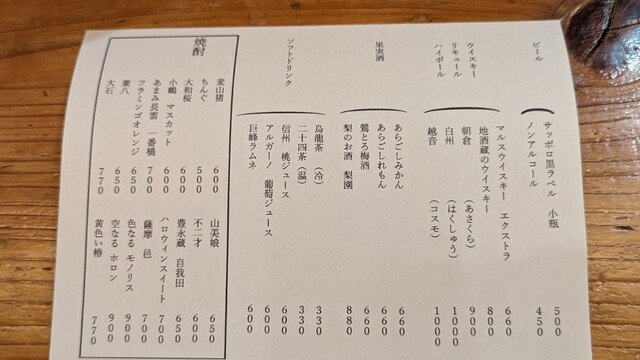 ビール
サッポロ黒ラベル 小瓶 500
ノンアルコール 450
ウイスキー
リキュール
ハイボール
マルスウイスキー エクストラ 660
地酒蔵のウイスキー 800
朝倉 (あさくら) 900
白州 (はくしゅう) 1000
越音 (コスモ) 1000
果実酒
あらごしみかん 660
あらごしれもん 660
鶯とろ梅酒 660
梨のお酒 梨園 880
ソフトドリンク
烏龍茶 (冷) 330
二十四茶 (温) 330
信州 桃ジュース 600
アルガーノ 葡萄ジュース 600
巨峰ラムネ 600
焼酎
麦山猪 600
ちんぐ 500
大和桜 600
小鶴 マスカット 600
あまみ長雲 一番橋 700
フラミンゴオレンジ 650
兼八 650
大石 770
山美娘 650
不二才 600
豊永蔵 自我田 650
ハロウィンスイート 700
薩摩 邑 700
色なる モノリス 900
空なる ホロン 900
黄色い椿 770